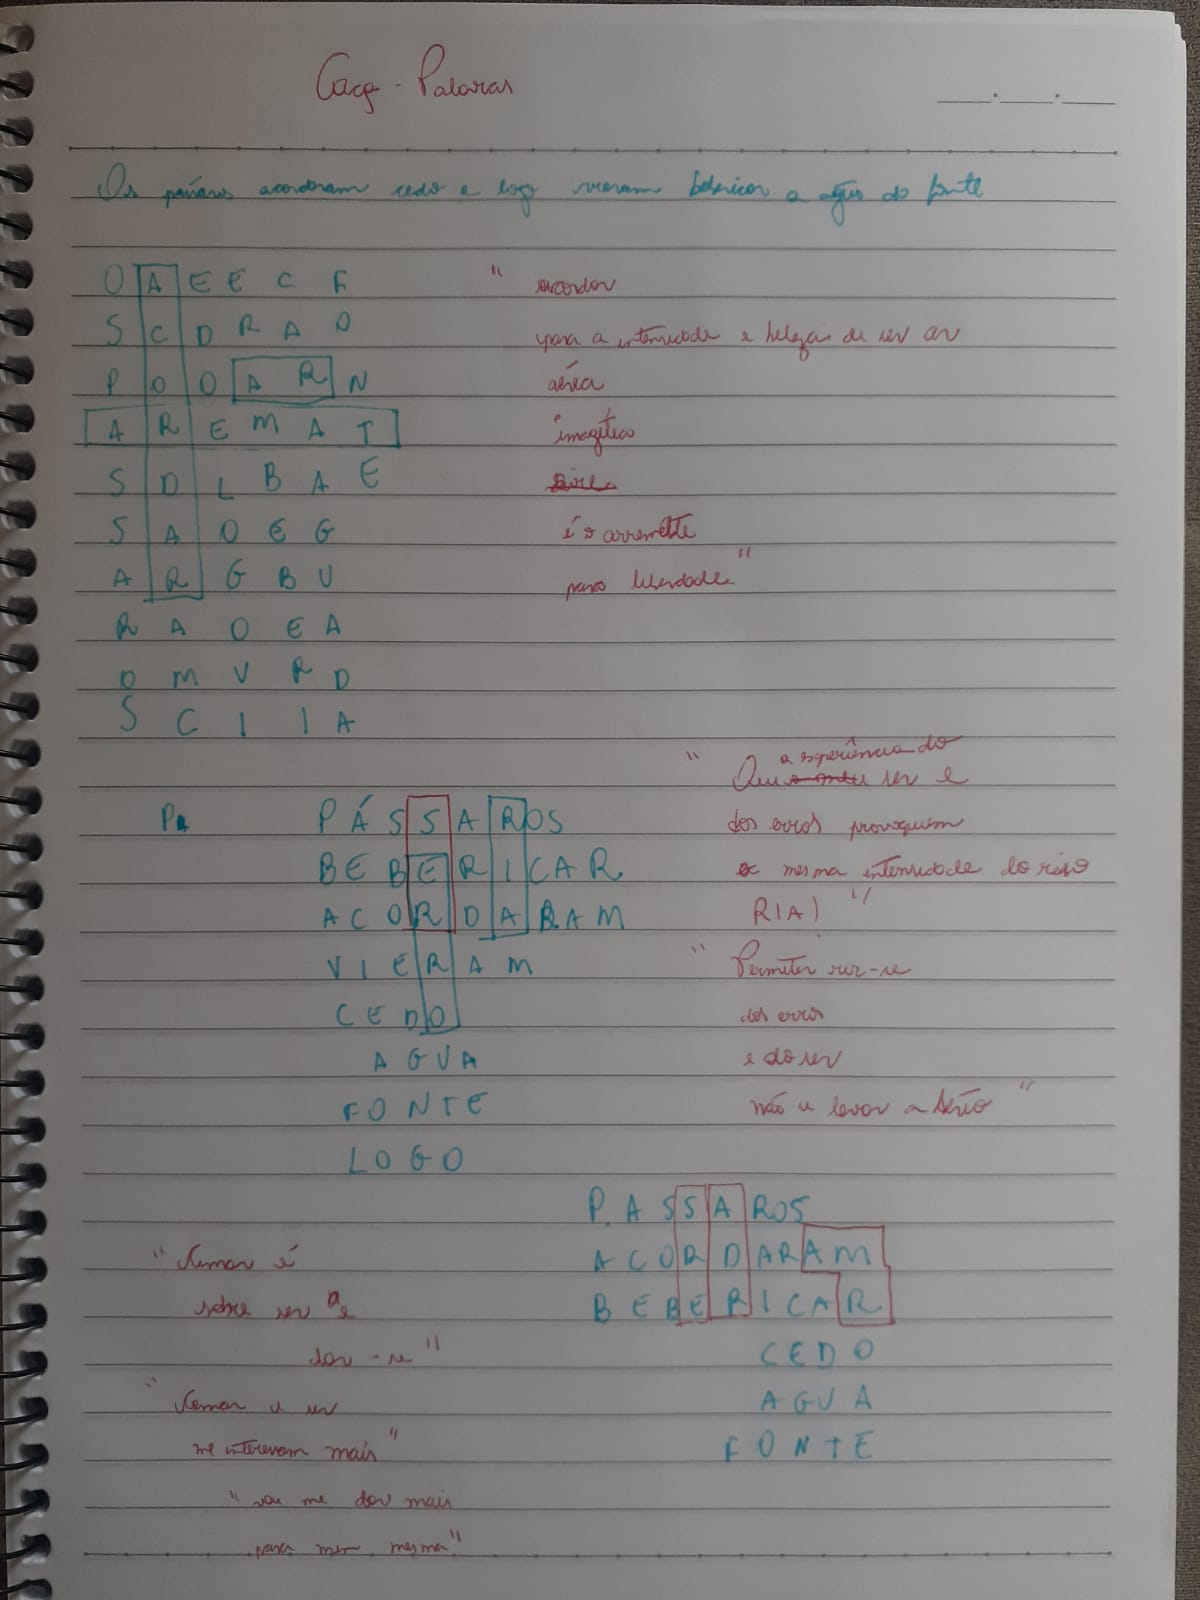 Caça-Palavras
Os pássaros acordaram cedo e logo vieram bebericar a água da fonte
O A E E C F
S C D R A O
P O O A R N
A R E M A T
S D L B A E
S A O E G
A R G B U
R A O E A
O M V R D
S C I I A
" acordar
para a intensidade e beleza de ser ar
aérea
imagético
é o arremate
para liberdade "
PA
PÁSSAROS
BEBERICAR
ACORDARAM
VIERAM
CEDO
AGUA
FONTE
LOGO
" a experiência do
Que ser e
dos erros provoquem
a mesma intensidade do riso
RIA! "
" Permitir rir-se
dos erros
e do ser
não se levar a sério "
PASSAROS
ACORDARAM
BEBERICAR
CEDO
AGUA
FONTE
" Remar é
sobre ser e
dar-se "
" Remar e ser
me interessam mais "
" vou me dar mais
para mim mesma "